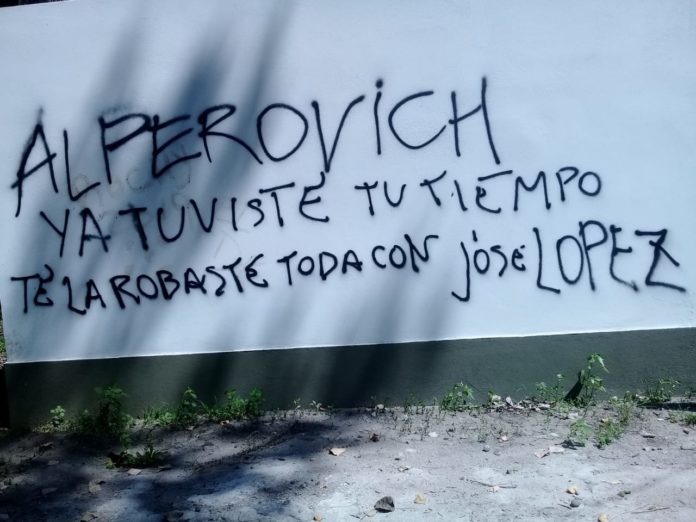 ALPEROVICH
YA TUVISTE TU TIEMPO
TE LA ROBASTE TODA CON JOSÉ LOPEZ